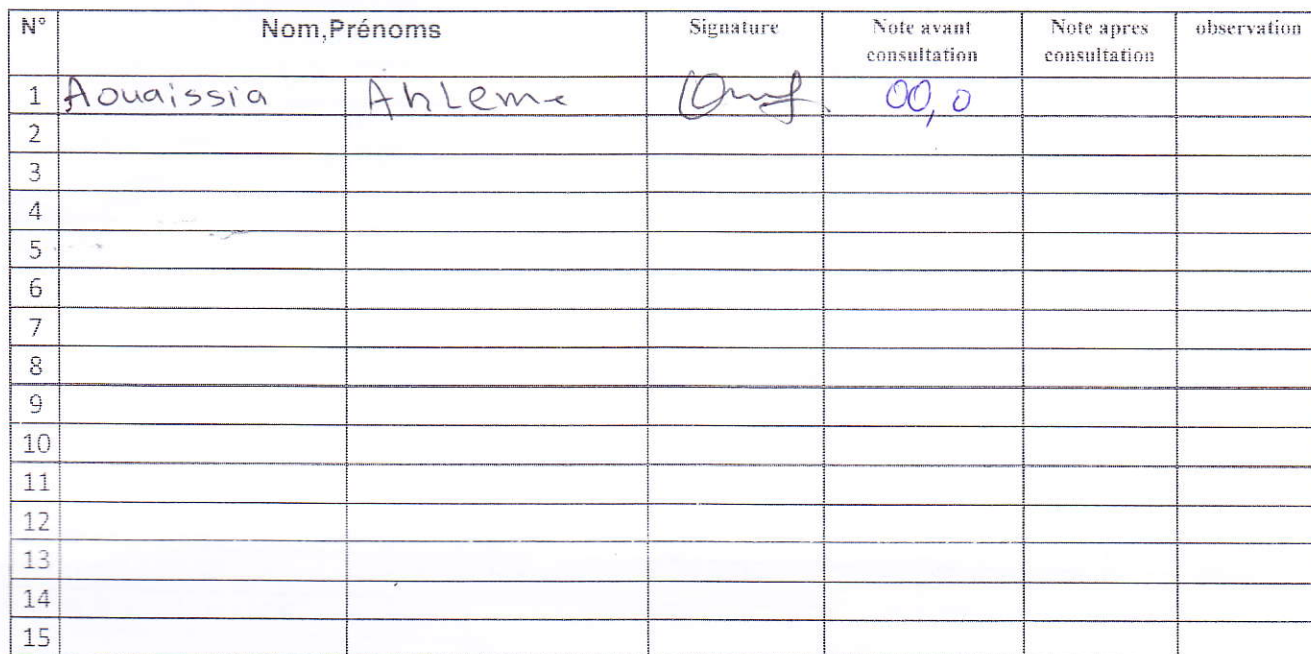 N° Nom,Prénoms Signature Note avant consultation Note apres consultation observation
1 Aouaissia Ahleme 00,0
2
3
4
5
6
7
8
9
10
11
12
13
14
15